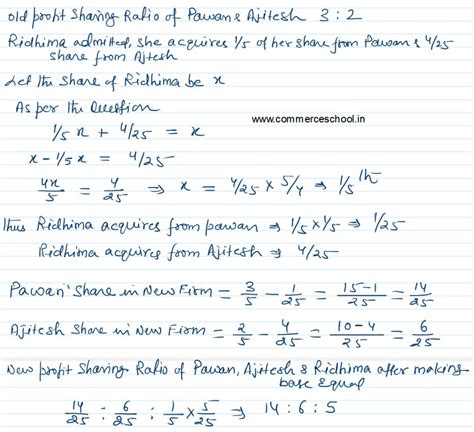 Old profit Sharing Ratio of Pawan & Ajitesh 3 : 2
Ridhima admitted, she acquires 1/5 of her share from Pawan & 4/25
share from Ajtesh
Let the share of Ridhima be x
As per the Question
www.commerceschool.in
1/5 x + 4/25 = x
x - 1/5 x = 4/25
4x/5 = 4/25 ⇒ x = 4/25 × 5/4 ⇒ 1/5 th
Thus Ridhima acquires from pawan ⇒ 1/5 × 1/5 ⇒ 1/25
Ridhima acquires from Ajitesh ⇒ 4/25
Pawan's Share in New Firm = 3/5 - 1/25 = 15-1/25 = 14/25
Ajitesh Share in New Firm = 2/5 - 4/25 = 10-4/25 = 6/25
New profit Sharing Ratio of Pawan, Ajitesh & Ridhima after making
base Equal
14/25 : 6/25 : 1/5 × 5/25 ⇒ 14 : 6 : 5